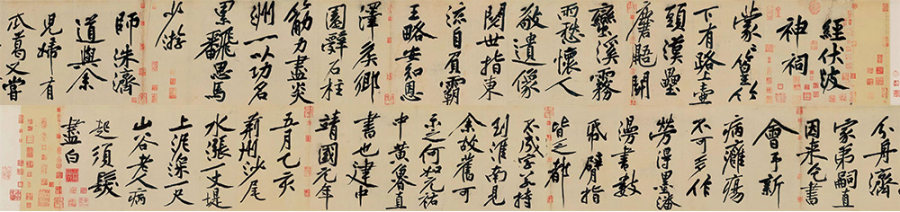 經伏波
神祠
蒙々篁竹
下有路上壺
頭漢壘
麏鼯鬥
蠻溪霧
雨愁懷人
敬遺像
閱世指東
流自負霸
王略安知恩
澤侯鄉
園辭石柱
筋力盡炎
洲一以功名
累翻思馬
少游
師洙濟
道與余
兒婦有
瓜葛又嘗
分舟濟
家弟嗣直
因來乞書
會予新
病癰瘍
不可多作
勞得墨瀋
漫書數
紙臂指
皆乏都
不成字若持
到淮南見
余故舊可
示之何如元祐
中黃魯直
書也建中
靖國元年
五月乙亥
荊州沙尾
水漲一丈堤
上泥深一尺
山谷老人病
起須髮
盡白